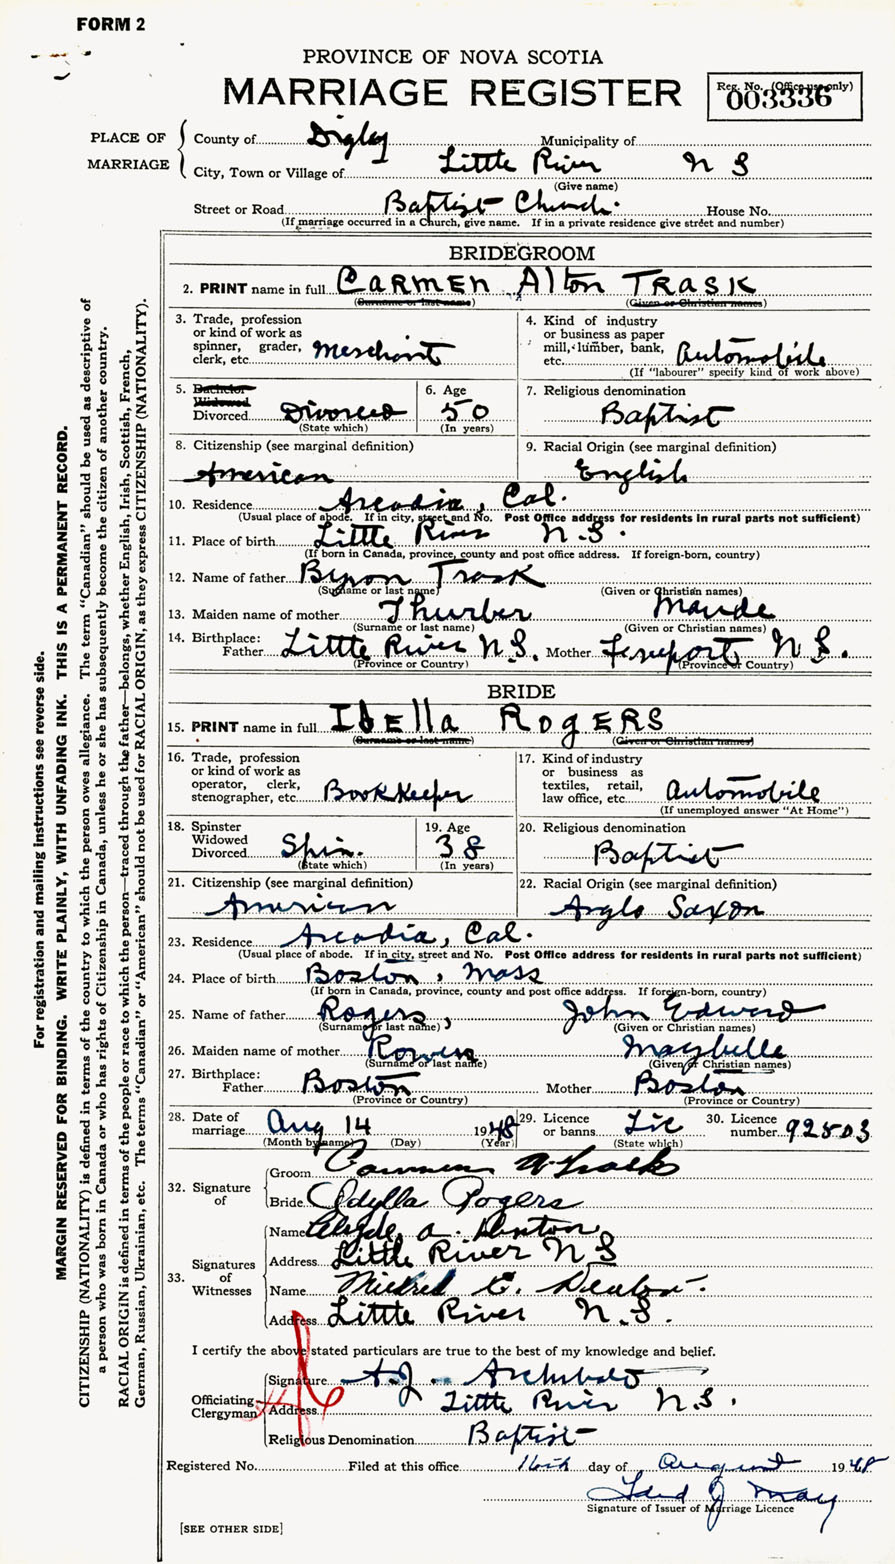 FORM 2
PROVINCE OF NOVA SCOTIA
MARRIAGE REGISTER
Reg. No. (Office use only)
003336
PLACE OF MARRIAGE
County of Digby Municipality of
City, Town or Village of Little River N S
(Give name)
Street or Road Baptist Church. House No.
(If marriage occurred in a Church, give name. If in a private residence give street and number)
BRIDEGROOM
2. PRINT name in full CARMEN Alton TRASK
(Surname or last name) (Given or Christian names)
3. Trade, profession or kind of work as spinner, grader, clerk, etc. Merchant
4. Kind of industry or business as paper mill, lumber, bank, etc. Automobile
(If "labourer" specify kind of work above)
5. Bachelor Widowed Divorced Divorced
(State which)
6. Age 50
(In years)
7. Religious denomination
Baptist
8. Citizenship (see marginal definition)
American
9. Racial Origin (see marginal definition)
English
10. Residence Arcadia, Cal.
(Usual place of abode. If in city, street and No. Post Office address for residents in rural parts not sufficient)
11. Place of birth Little River N.S.
(If born in Canada, province, county and post office address. If foreign-born, country)
12. Name of father Byron Trask
(Surname or last name) (Given or Christian names)
13. Maiden name of mother Thurber Maude
(Surname or last name) (Given or Christian names)
14. Birthplace:
Father Little River N.S. Mother Freeport N S.
(Province or Country) (Province or Country)
BRIDE
15. PRINT name in full IdElla RogERS
(Surname or last name) (Given or Christian names)
16. Trade, profession or kind of work as operator, clerk, stenographer, etc. Bookkeeper
17. Kind of industry or business as textiles, retail, law office, etc. Automobile
(If unemployed answer "At Home")
18. Spinster Widowed Divorced Spin.
(State which)
19. Age 38
(In years)
20. Religious denomination
Baptist
21. Citizenship (see marginal definition)
American
22. Racial Origin (see marginal definition)
Anglo Saxon
23. Residence Arcadia, Cal.
(Usual place of abode. If in city, street and No. Post Office address for residents in rural parts not sufficient)
24. Place of birth Boston, Mass
(If born in Canada, province, county and post office address. If foreign-born, country)
25. Name of father Rogers, John Edward
(Surname or last name) (Given or Christian names)
26. Maiden name of mother Maybelle
(Surname or last name) (Given or Christian names)
27. Birthplace:
Father Boston Mother Boston
(Province or Country) (Province or Country)
28. Date of marriage Aug 14 1948
(Month by name) (Day) (Year)
29. Licence or banns Lic
(State which)
30. Licence number 92503
32. Signature of
Groom Carmen A Trask
Bride Idylla Rogers
33. Signatures of Witnesses
Name Clyde A. Denton
Address Little River N S
Name Mildred E. Denton.
Address Little River N.S.
I certify the above stated particulars are true to the best of my knowledge and belief.
Officiating Clergyman
Signature A.J. Archibald
Address Little River N.S.
Religious Denomination Baptist
Registered No. Filed at this office 16th day of August 1948
Signature of Issuer of Marriage Licence
[SEE OTHER SIDE]
For registration and mailing instructions see reverse side.
MARGIN RESERVED FOR BINDING. WRITE PLAINLY, WITH UNFADING INK. THIS IS A PERMANENT RECORD.
CITIZENSHIP (NATIONALITY) is defined in terms of the country to which the person owes allegiance. The term "Canadian" should be used as descriptive of
a person who was born in Canada or who has rights of Citizenship in Canada, unless he or she has subsequently become the citizen of another country.
RACIAL ORIGIN is defined in terms of the people or race to which the person—traced through the father—belongs, whether English, Irish, Scottish, French,
German, Russian, Ukrainian, etc. The terms "Canadian" or "American" should not be used for RACIAL ORIGIN, as they express CITIZENSHIP (NATIONALITY).